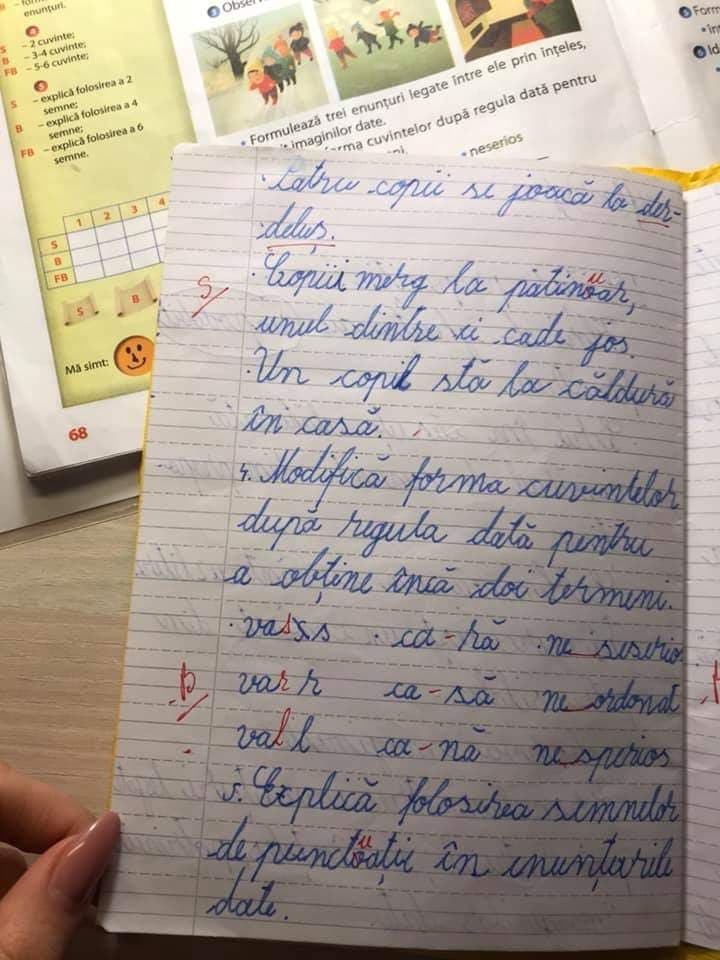 enunțuri.
4
S – 2 cuvinte;
B – 3-4 cuvinte;
FB – 5-6 cuvinte;
5
S – explică folosirea a 2
semne;
B – explică folosirea a 4
semne;
FB – explică folosirea a 6
semne.
1 2 3 4
S
B
FB
S B
Mă simt:
68
3 Observ
• Formulează trei enunțuri legate între ele prin înțeles,
imaginilor date.
forma cuvintelor după regula dată pentru
• neserios
5 Form
6 Id
· Patru copii se joacă la der-
deluș.
S
· Copiii merg la patinouar,
unul dintre ei cade jos.
· Un copil stă la căldură
în casă.
4. Modifică forma cuvintelor
după regula dată pentru
a obține încă doi termeni.
· vas s · ca-ră · ne seserio
B
var r ca-să ne ordonat
val l ca-nă ne sperios
5. Explică folosirea semnelor
de punctouații în enunțurile
date.